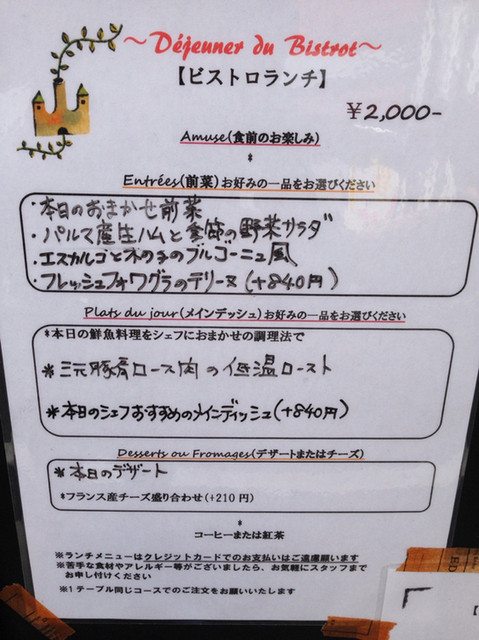 ~Déjeuner du Bistrot~
【ビストロランチ】
￥2,000-
Amuse(食前のお楽しみ)
*
Entrées(前菜)お好みの一品をお選びください
・本日のおまかせ前菜
・パルマ産生ハムと季節の野菜サラダ
・エスカルゴときのこのブルゴーニュ風
・フレッシュフォワグラのテリーヌ(+840円)
Plats du jour(メインデッシュ)お好みの一品をお選びください
*本日の鮮魚料理をシェフにおまかせの調理法で
*三元豚肩ロース肉の低温ロースト
*本日のシェフおすすめのメインディッシュ(+840円)
Desserts ou Fromages(デザートまたはチーズ)
*本日のデザート
*フランス産チーズ盛り合わせ(+210円)
*
コーヒーまたは紅茶
※ランチメニューはクレジットカードでのお支払いはご遠慮願います
※苦手な食材やアレルギー等がございましたら、お気軽にスタッフまで
お申し付けください
※1テーブル同じコースでのご注文をお願いいたします